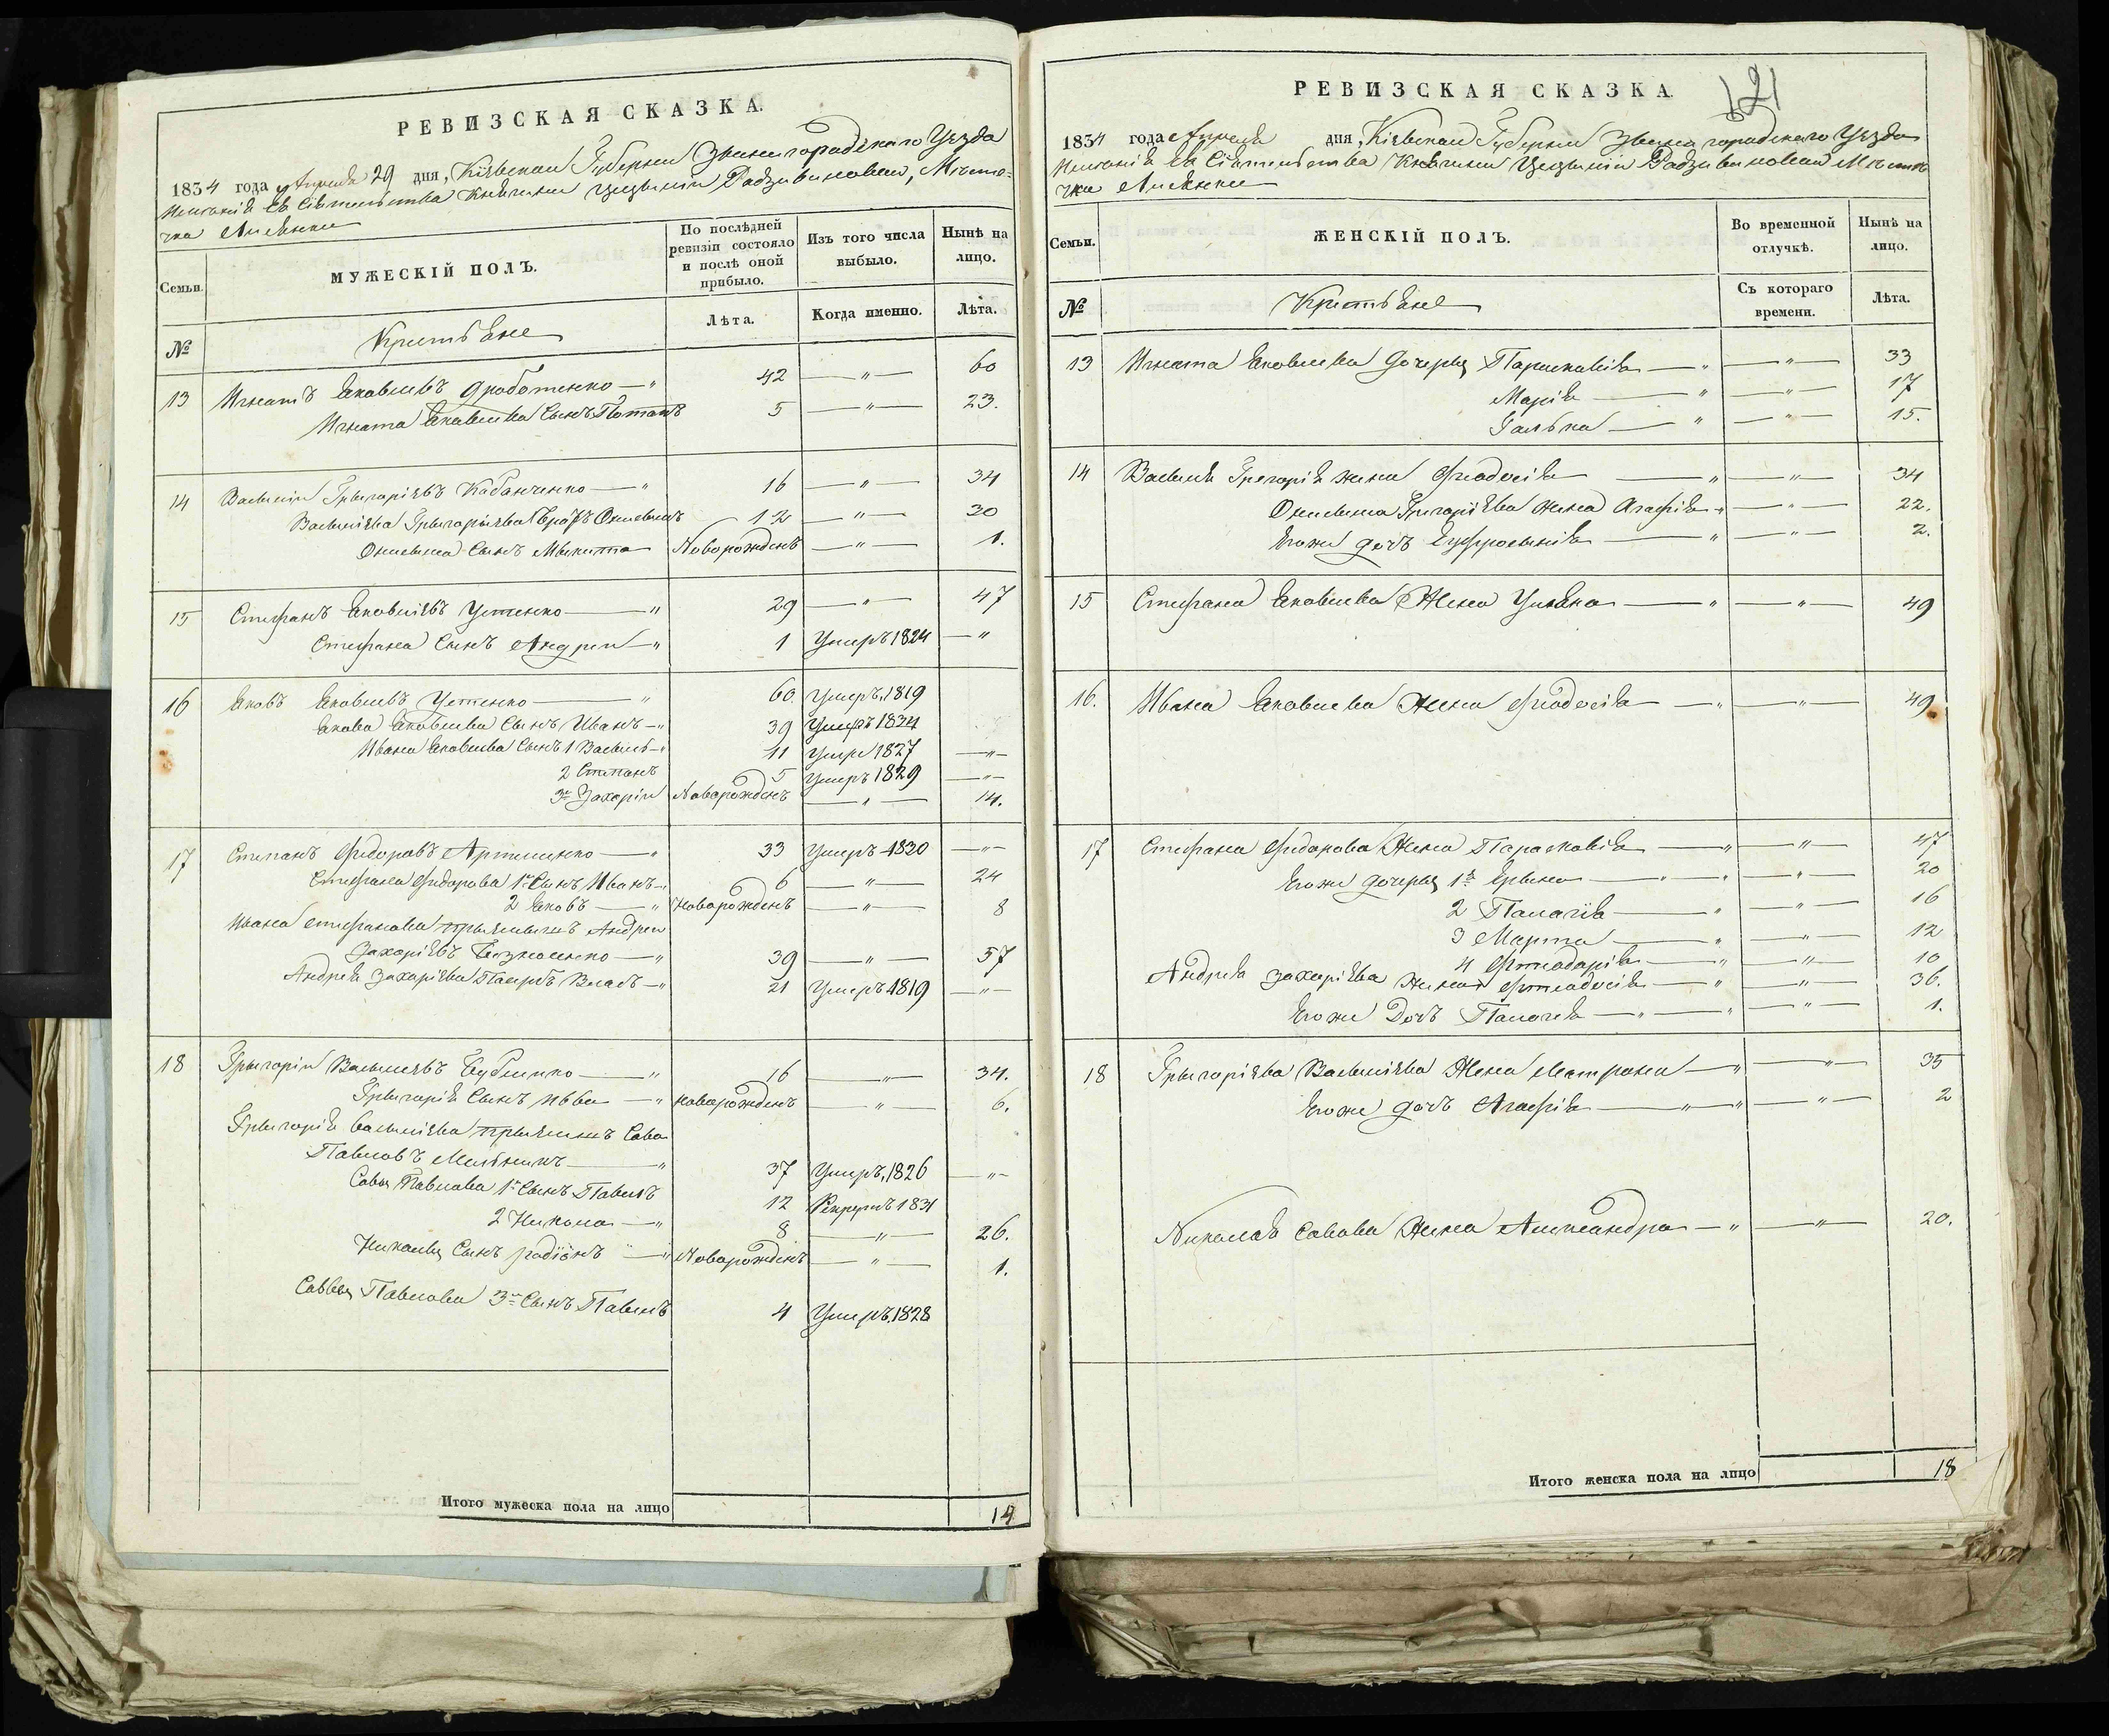 РЕВИЗСКАЯ СКАЗКА.
1834 года Апреля 29 дня, Кіевской Губерніи Звенигородскаго Уезда
Именія Ея Сіятельства Княгини Цецыліи Радзивиловой, Месте-
чка Лисянки
Семьи.
МУЖЕСКІЙ ПОЛЪ.
По послѣдней ревизіи состояло и послѣ оной прибыло.
Изъ того числа выбыло.
Нынѣ на лицо.
№
Крестьяне
Лѣта.
Когда именно.
Лѣта.
13 Игнатъ Яковлевъ Дроботенко — " 42 — " — 60
Игната Яковлева Сынъ Потапъ 5 — " — 23.
14 Василій Грыгоріевъ Кабанченко — " 16 — " — 34
Василіева Грыгоріева Братъ Онисимъ 12 — " — 30
Онисима Сынъ Мыкита Новорожденъ — " — 1.
15 Стефанъ Яковліевъ Устенко — " 29 — " — 47
Стефана Сынъ Андрей — " 1 Умеръ 1824 — "
16 Яковъ Яковлевъ Устенко — " 60 Умеръ, 1819
Якова Яковлева Сынъ Иванъ — " 39 Умеръ 1834
Ивана Яковлева Сынъ 1 Василь — " 11 Умеръ 1827 — " —
2 Степанъ 5 Умеръ 1829 — " —
3й Захарій Новорожденъ — " — 14.
17 Степанъ Фидоровъ Артеменко — " 33 Умеръ 1820 — " —
Стефана Фидорова 1й Сынъ Иванъ — " 6 — " — 24
2 Яковъ — " Новорожденъ — " — 8
Ивана Стефанова Андрей
Захаріевъ — " 39 — " — 57
Андрея Захаріева Власъ — " 21 Умеръ 1819 — " —
18 Грыгорій Васильевъ Бубленко — " 16 — " — 34.
Грыгорія Сынъ Ивва — " Новорожденъ — " — 6.
Грыгорія Василіева Сава
Павловъ Мельникъ — " 37 Умеръ, 1826 — " —
Савы Павлова 1й Сынъ Павелъ 12 Рекрутъ 1831
2 Никола — " 8 — " — 26.
Николы Сынъ Родіонъ — " Новорожденъ — " — 1.
Саввы Павлова 3й Сынъ Павелъ 4 Умеръ, 1828
Итого мужеска пола на лицо 14
РЕВИЗСКАЯ СКАЗКА.
121
1834 года Апреля дня, Кіевской Губерніи Звенигородскаго Уезда
Именія Ея Сіятельства Княгини Цецыліи Радзивиловой Местѣ
чка Лисянки
Семьи.
ЖЕНСКІЙ ПОЛЪ.
Во временной отлучкѣ.
Нынѣ на лицо.
№
Крестьяне
Съ котораго времени.
Лѣта.
13 Игната Яковлева Дочеры Парасковія — " — " — 33
Марія — " — " — 17
Галька — " — " — 15.
14 Василя Грегорія жена Феодосія — " — " — 34
Онисима Григоріева жена Агафія — " — " — 22.
Егоже дочъ Ефросынія — " — " — 2.
15 Стефана Яковлева Жена Ульяна — " — " — 49
16. Ивана Яковлева Жена Феодосія — " — " — 49
17 Стефана Фидорова Жена Параскавія — " — " — 47
Егоже дочеры 1я Ерына — " — " — 20
2 Палагія — " — " — 16
3 Марта — " — " — 12
4 Фтеодорія — " — " — 10
Андрея Захаріева Жена Фтеодосія — " — " — 36.
Егоже Дочъ Палагея — " — " — 1.
18 Грыгоріева Василіева Жена Матрона — " — " — 35
Егоже дочъ Агафія — " — " — 2
Николая Савова Жена Александра — " — " — 20.
Итого женска пола на лицо 18